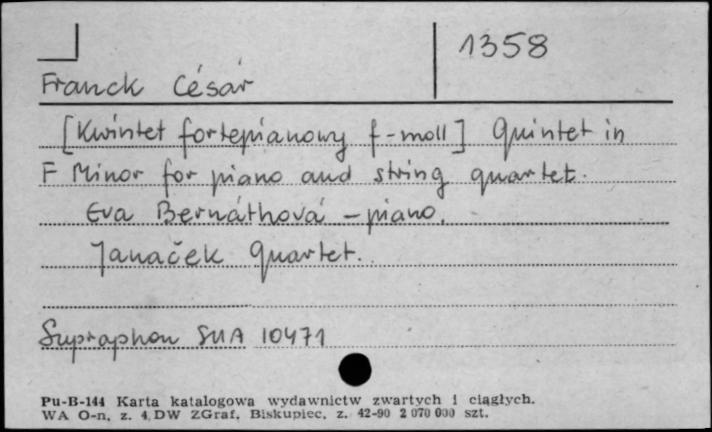 1358
Franck César
[Kwintet fortepianowy f-moll] Quintet in
F Minor for piano and string quartet.
Eva Bernáthová - piano.
Janaček Quartet.
Supraphon SUA 10471
Pu-B-144 Karta katalogowa wydawnictw zwartych i ciągłych.
WA O-n. z. 4. DW ZGraf. Biskupiec, z. 42-90 2 070 000 szt.